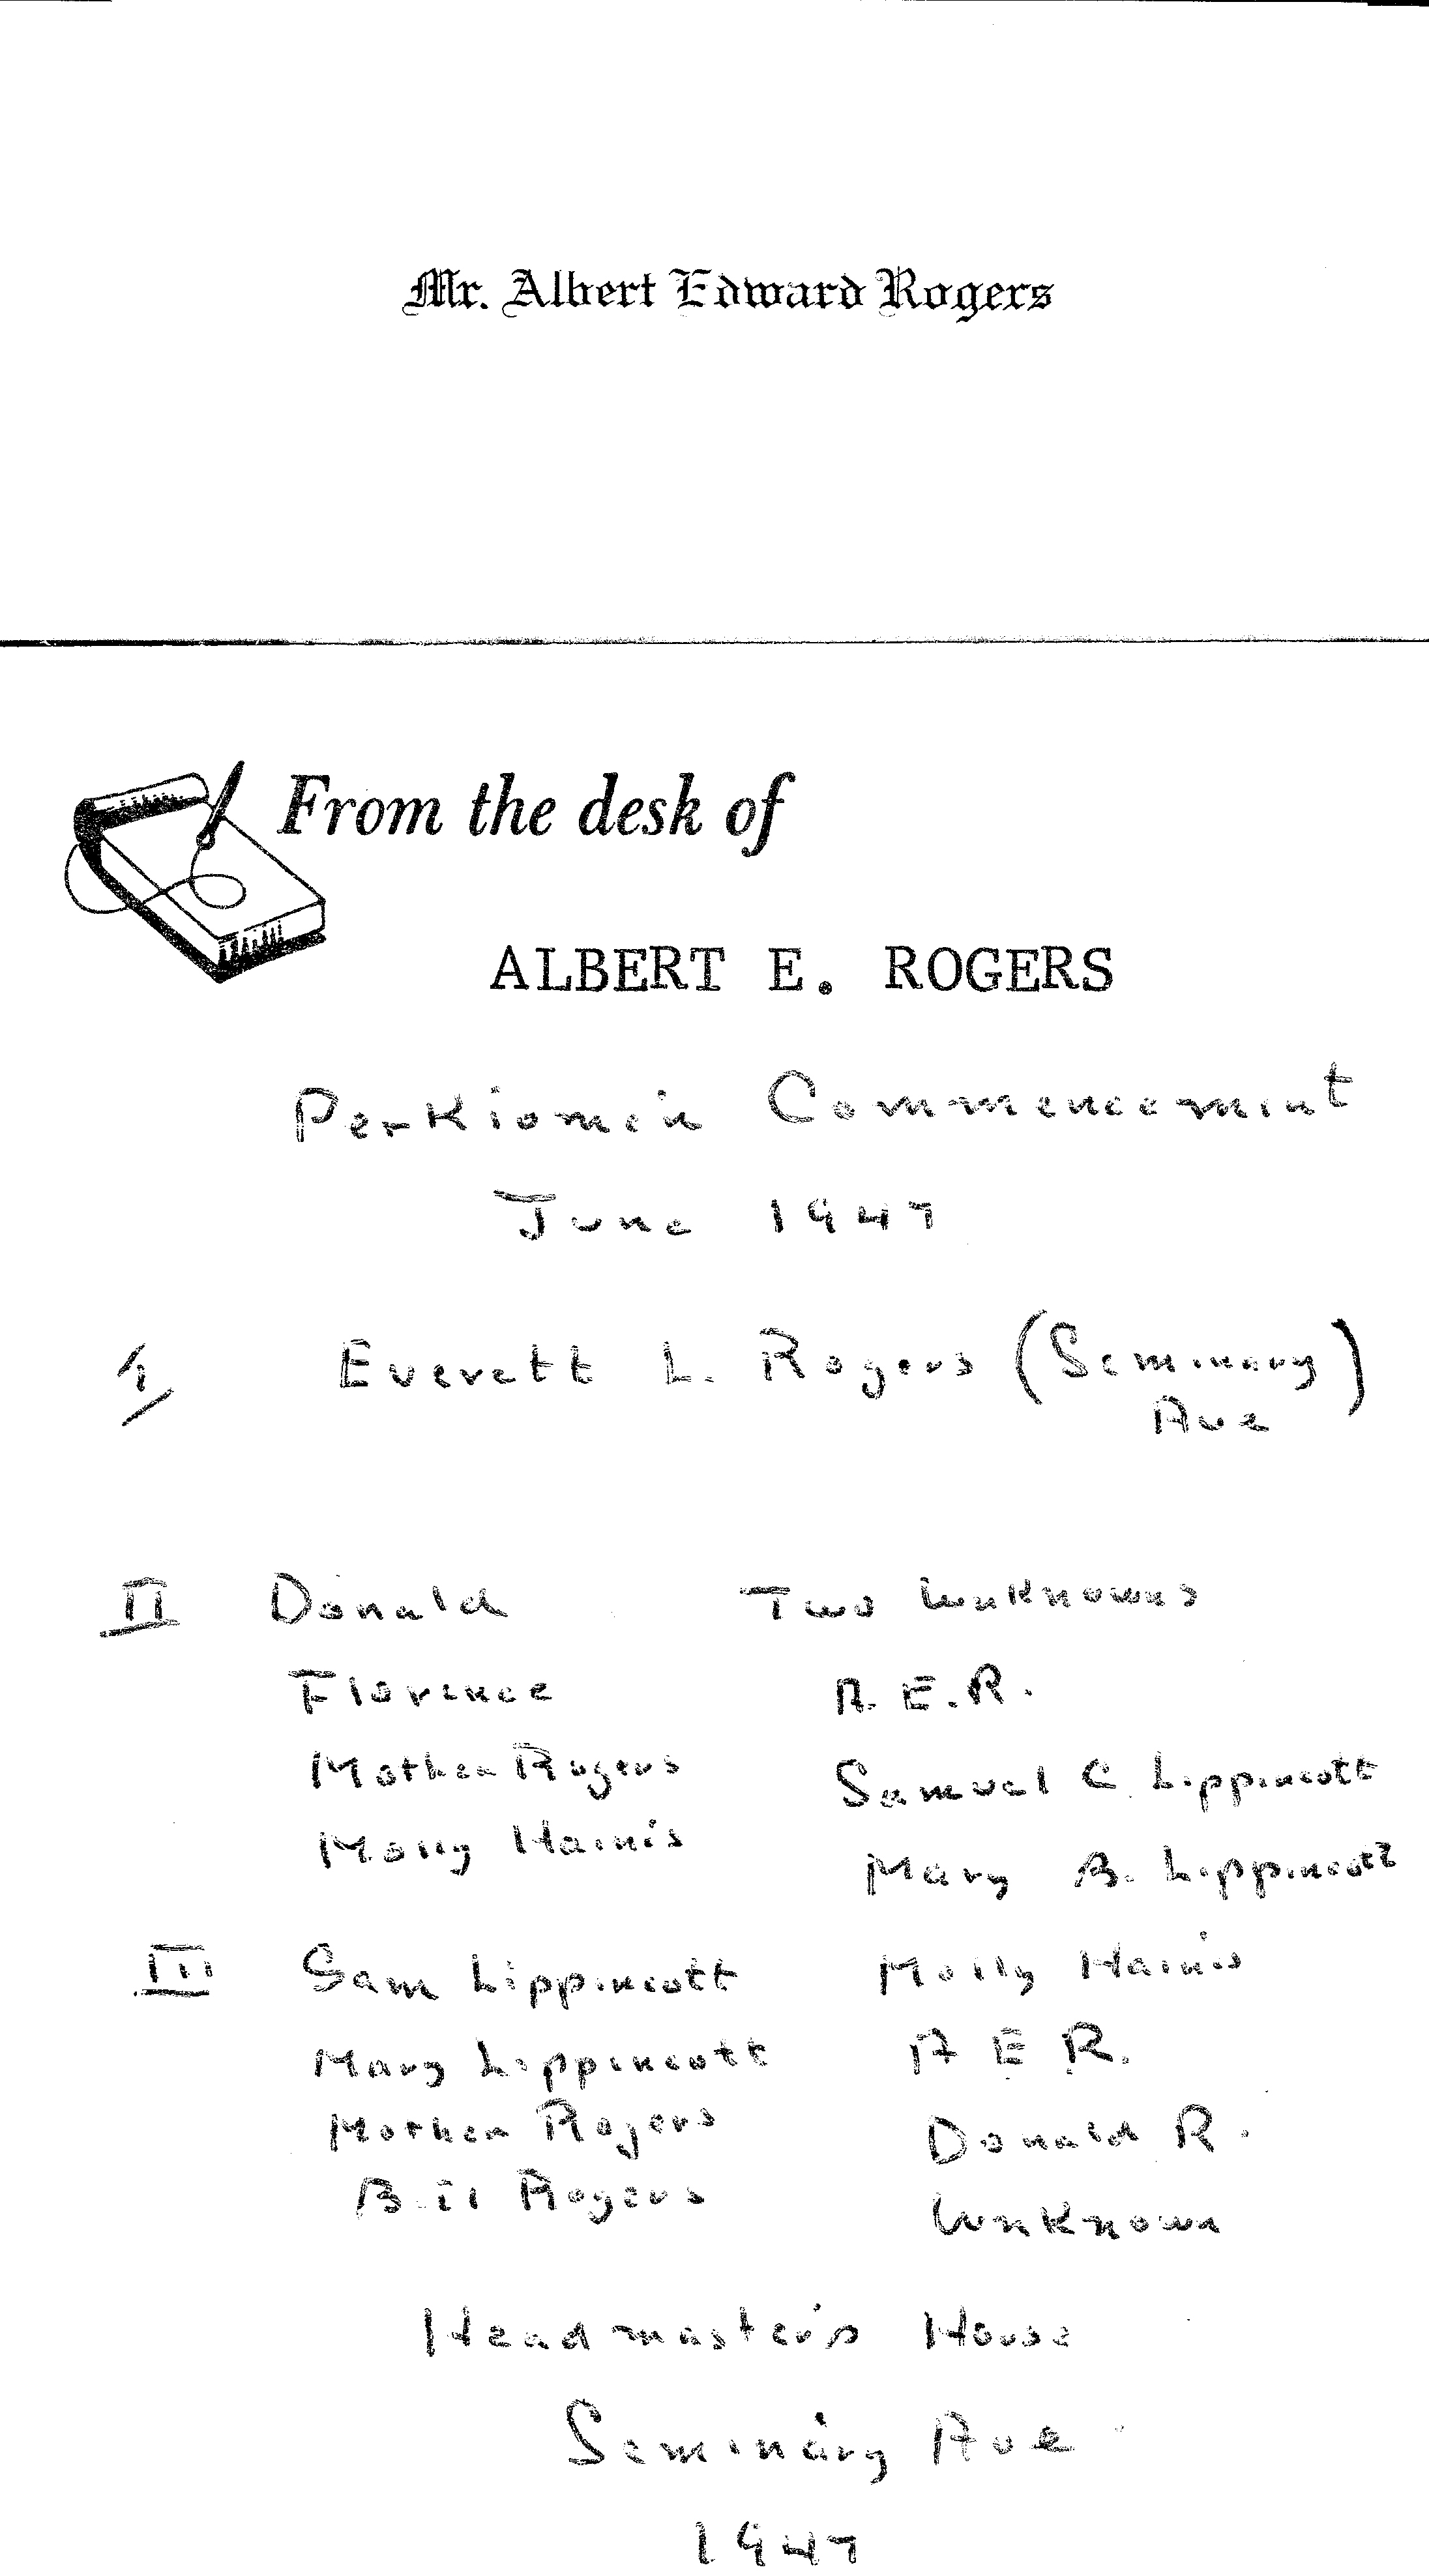 Mr. Albert Edward Rogers
From the desk of
ALBERT E. ROGERS
Perkiomen Commencement
June 1947
1 Everett L. Rogers (Seminary)
Ave
II Donald Two Unknowns
Florence A. E. R.
Mother Rogers Samuel C. Lippincott
Molly Hainis Mary B. Lippincott
III Sam Lippincott Molly Hainis
Mary Lippincott A E R.
Mother Rogers Donald R.
Bill Rogers Unknown
Headmaster's House
Seminary Ave
1947